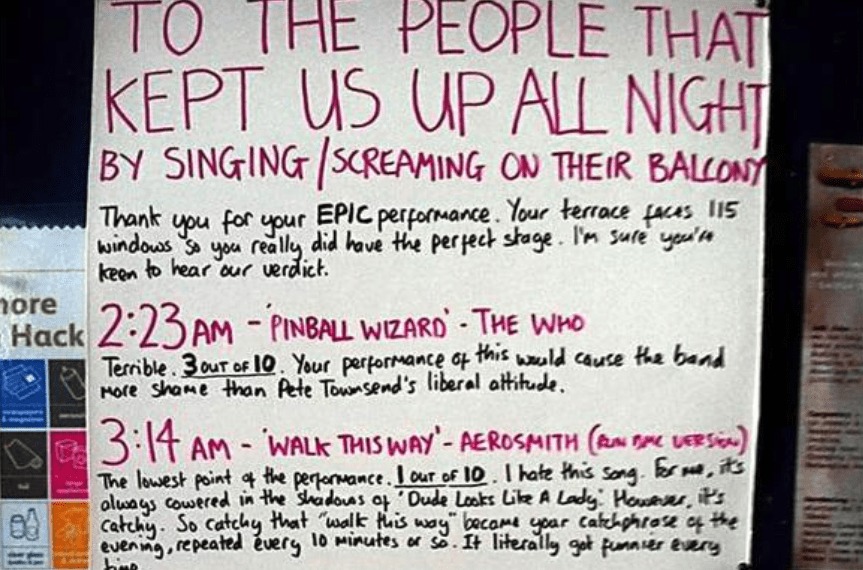 TO THE PEOPLE THAT
KEPT US UP ALL NIGHT
BY SINGING/SCREAMING ON THEIR BALCONY
Thank you for your EPIC performance. Your terrace faces 115
windows so you really did have the perfect stage. I'm sure you're
keen to hear our verdict.
2:23 AM - 'PINBALL WIZARD' - THE WHO
Terrible. 3 OUT OF 10. Your performance of this would cause the band
more shame than Pete Townsend's liberal attitude.
3:14 AM - 'WALK THIS WAY' - AEROSMITH (RUN DMC VERSION)
The lowest point of the performance. 1 OUT OF 10. I hate this song. For me, it's
always cowered in the shadows of 'Dude Looks Like A Lady.' However, it's
catchy. So catchy that "walk this way" became your catchphrase of the
evening, repeated every 10 minutes or so. It literally got funnier every
time.
more
Hack